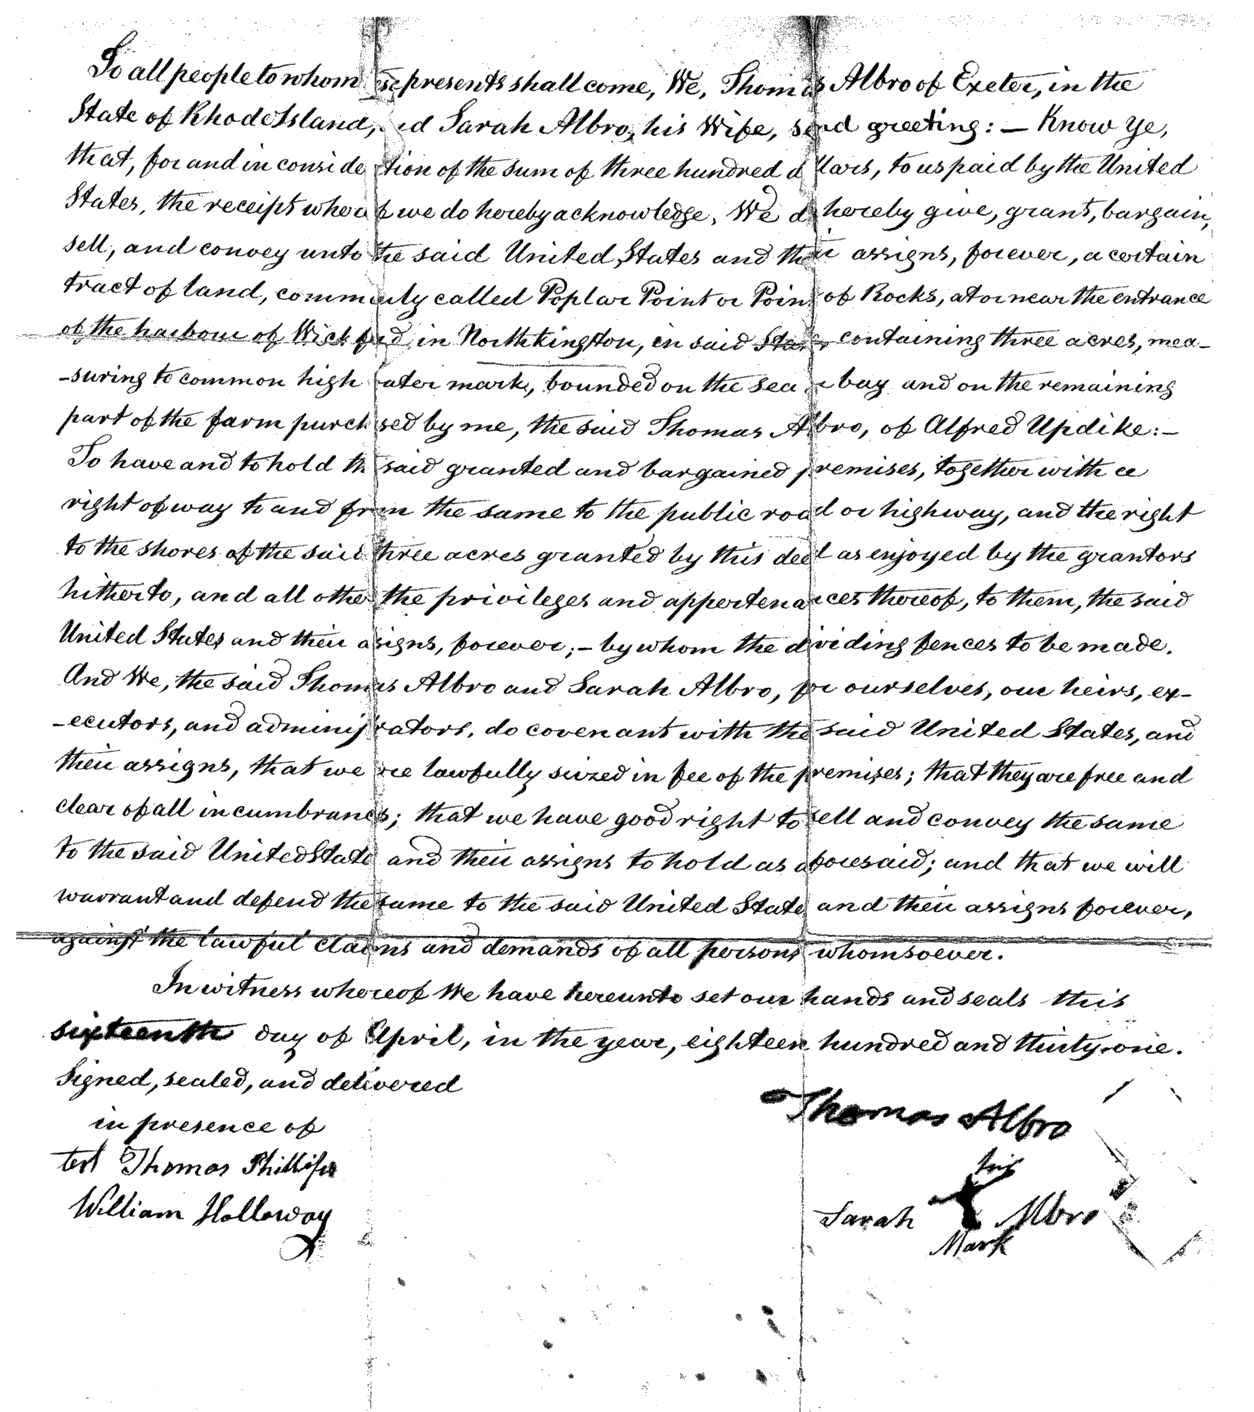 To all people to whom these presents shall come, We, Thomas Albro of Exeter, in the
State of Rhode Island, and Sarah Albro, his Wife, send greeting: — Know ye,
that, for and in consideration of the sum of three hundred dollars, to us paid by the United
States, the receipt whereof we do hereby acknowledge, We do hereby give, grant, bargain,
sell, and convey unto the said United States and their assigns, forever, a certain
tract of land, commonly called Poplar Point or Point of Rocks, at or near the entrance
of the harbour of Wickford in North kington, in said State, containing three acres, mea-
-suring to common high water mark, bounded on the sea or bay and on the remaining
part of the farm purchased by me, the said Thomas Albro, of Alfred Updike:—
To have and to hold the said granted and bargained premises, together with a
right of way to and from the same to the public road or highway, and the right
to the shores of the said three acres granted by this deed as enjoyed by the grantors
hitherto, and all other the privileges and appertenances thereof, to them, the said
United States and their assigns, forever; — by whom the dividing fences to be made.
And We, the said Thomas Albro and Sarah Albro, for ourselves, our heirs, ex-
-ecutors, and administrators, do covenant with the said United States, and
their assigns, that we are lawfully seized in fee of the premises; that they are free and
clear of all incumbrances; that we have good right to sell and convey the same
to the said United States and their assigns to hold as aforesaid; and that we will
warrant and defend the same to the said United States and their assigns forever,
against the lawful claims and demands of all persons whomsoever.
In witness whereof We have hereunto set our hands and seals this
sixteenth day of April, in the year, eighteen hundred and thirty-one.
Signed, sealed, and delivered
in presence of
test Thomas Phillips
William Holloway
Thomas Albro
his
Sarah X Albro
Mark